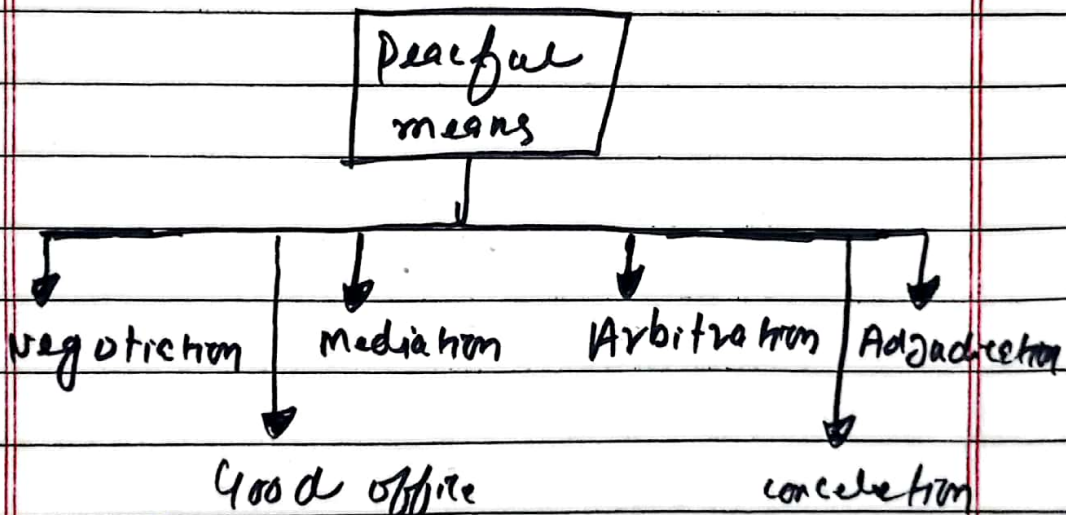 Peacful
means
Negotiction Mediation Arbitration Adjudection
Good office concelection